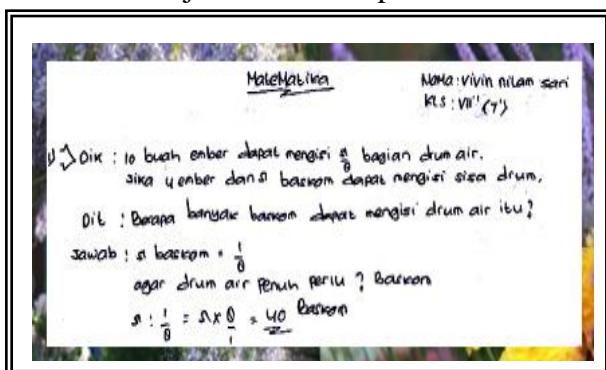 Matematika
Nama : vivin nilam sari
KLS : VII (7)
1) Dik : 10 buah ember dapat mengisi 5/8 bagian drum air.
Jika 4 ember dan 5 baskom dapat mengisi sisa drum,
Dit : Berapa banyak baskom dapat mengisi drum air itu?
Jawab : 5 baskom = 1/8
agar drum air penuh perlu ? Baskom
5 : 1/8 = 5 x 8/1 = 40 Baskom